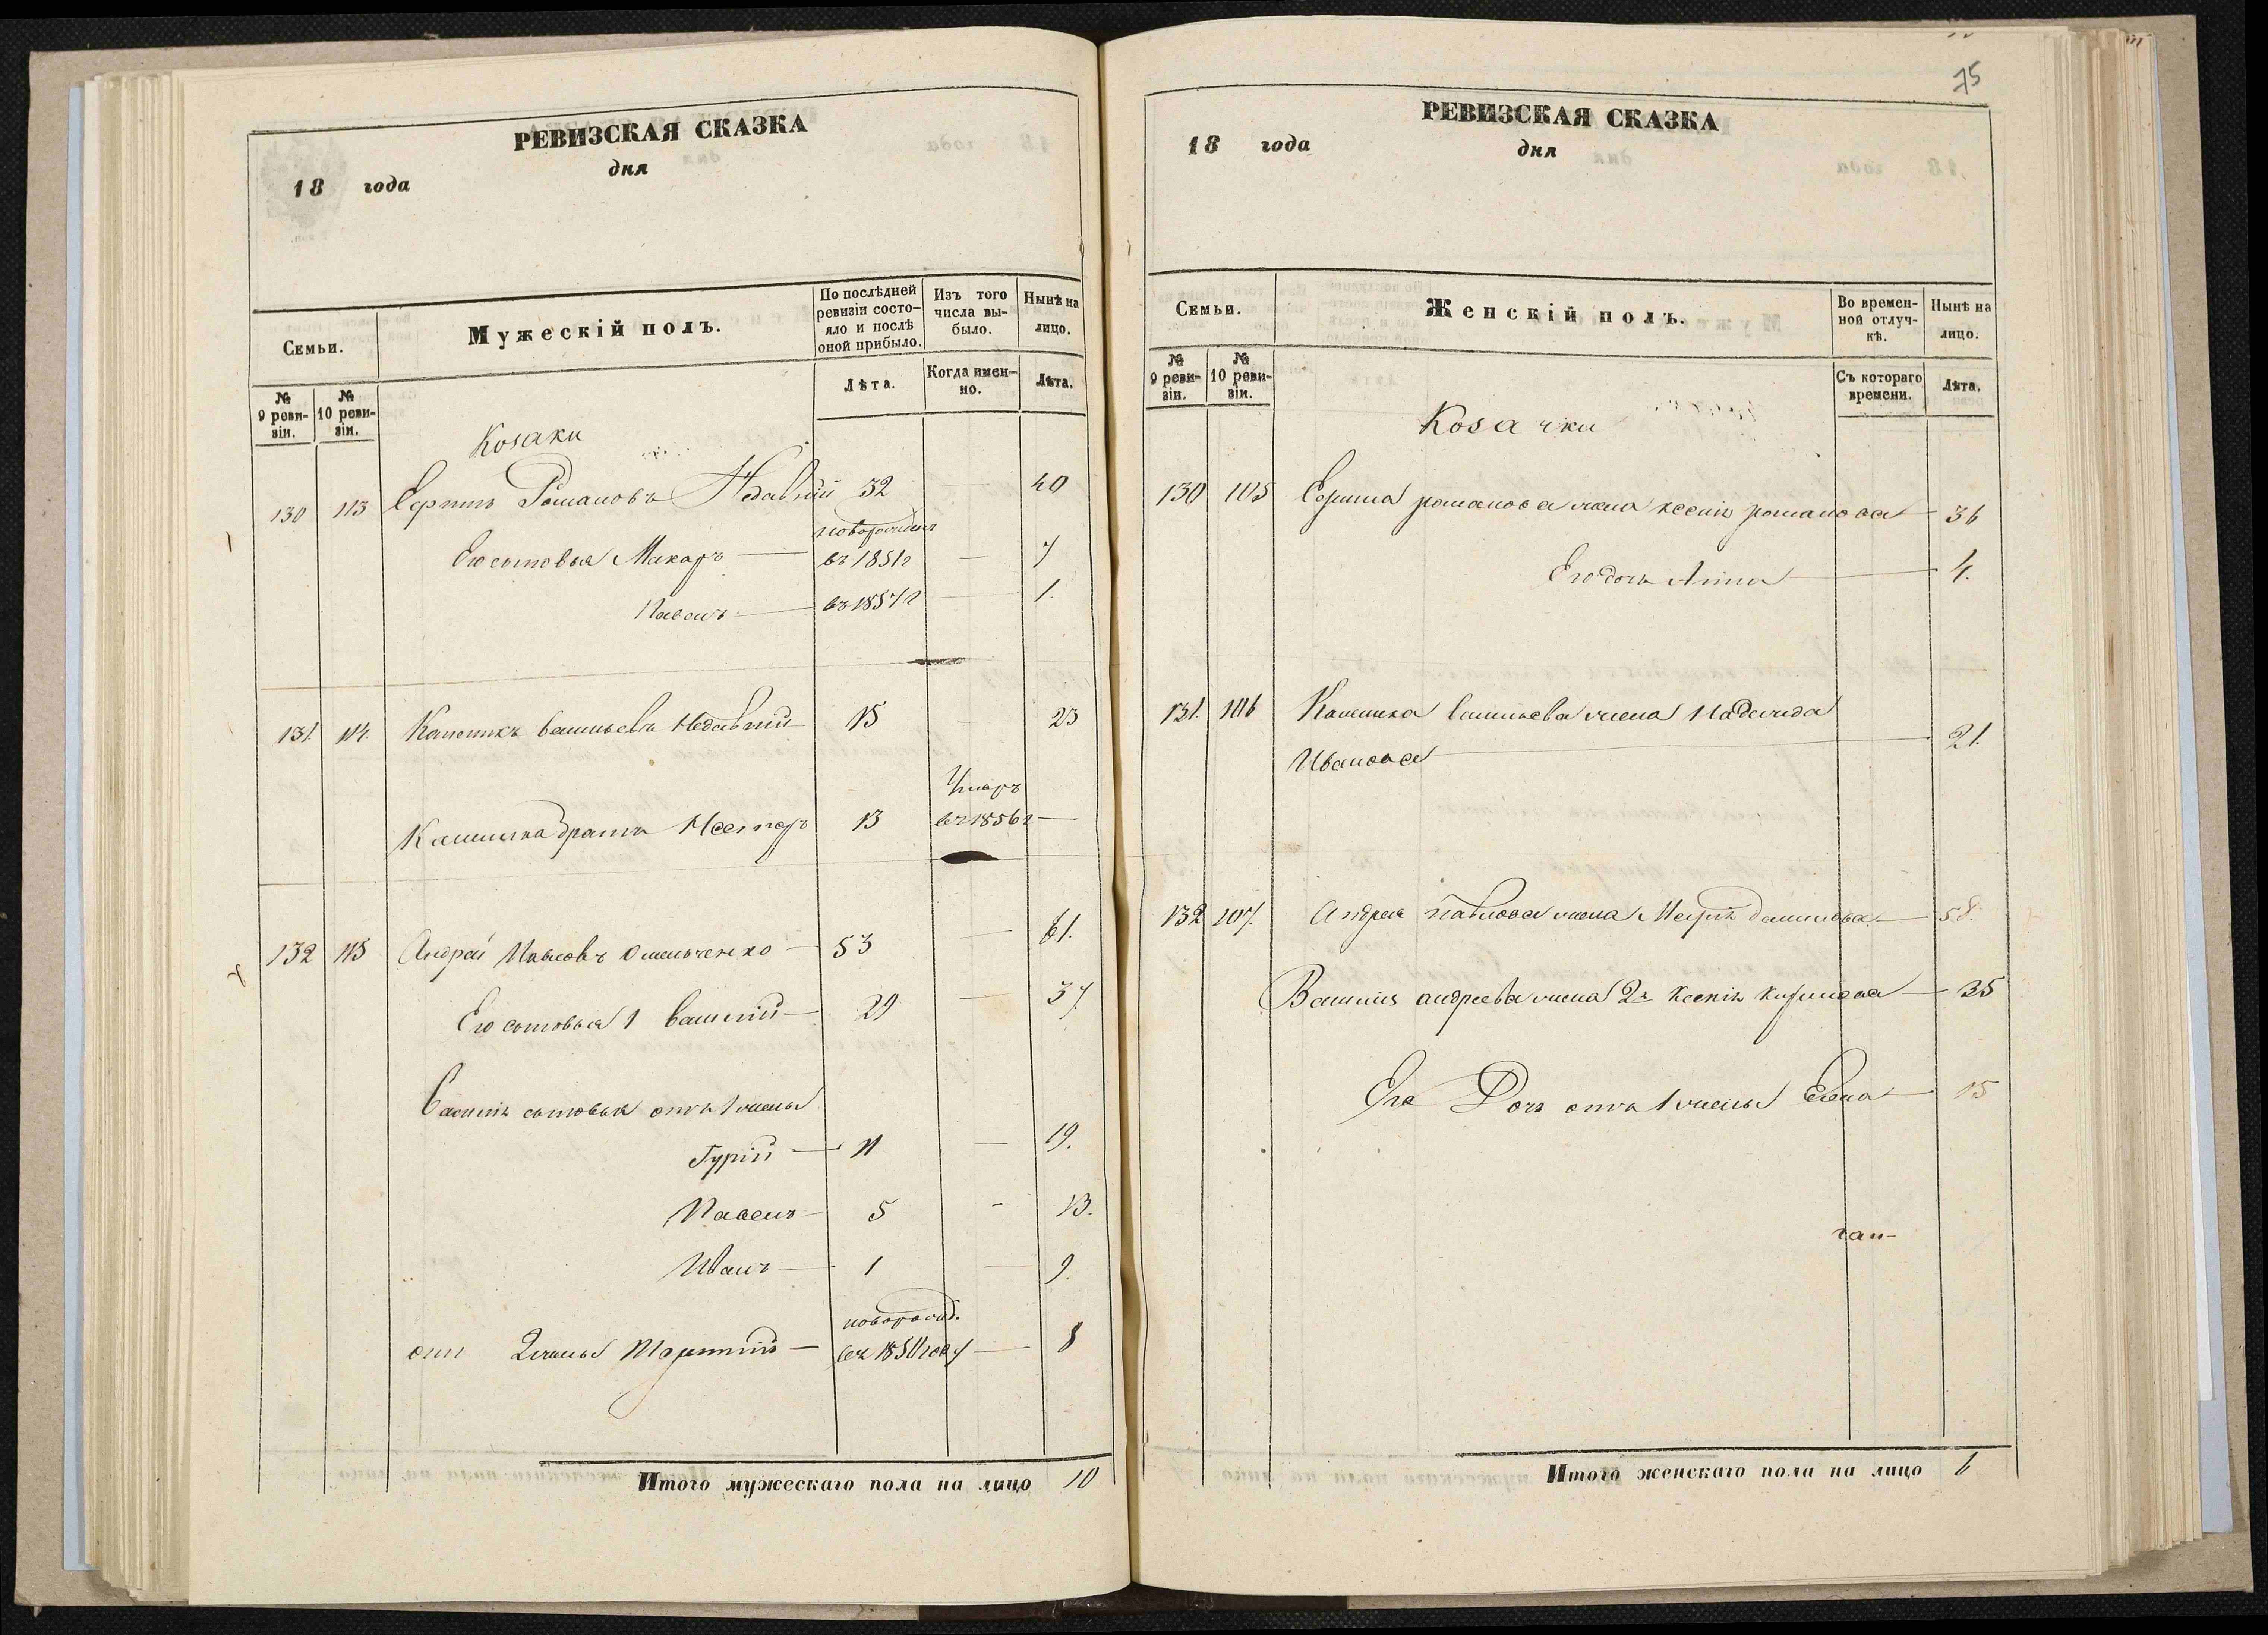 РЕВИЗСКАЯ СКАЗКА
18 года дня
Семьи.
Мужескій полъ.
По послѣдней ревизіи состояло и послѣ оной прибыло.
Изъ того числа выбыло.
Нынѣ на лицо.
№ 9 ревизіи.
№ 10 ревизіи.
Лѣта.
Когда именно.
Лѣта.
Козаки
130 113 Романовъ Недавній 32 — 40
новорожден
Его сыновья Макаръ — въ 1851г — 7
Павелъ — въ 1857г — 1.
131. 114. Васильевъ Недавній 15 — 23
Умеръ
братъ Несторъ 13 въ 1856г —
132 115 Андрей Павловъ Омельченко — 53 — 61.
Его сыновья 1 Василій — 29 — 37.
Василія сыновья отъ 1 жены
Гурій — 11 — 19.
Павелъ — 5 — 13.
Иванъ — 1 — 9.
новорожд.
отъ 2 жены — въ 1850 году — 8
Итого мужескаго пола на лицо 10
75
РЕВИЗСКАЯ СКАЗКА
18 года дня
Семьи.
Женскій полъ.
Во временной отлучкѣ.
Нынѣ на лицо.
№ 9 ревизіи.
№ 10 ревизіи.
Съ котораго времени.
Лѣта.
Козачки
130 105 романова жена Ксенія романова — 36
Его дочь Анна — 4.
131. 106 Васильева жена Надежда
Иванова — 21.
132 107. Андрея Павлова жена — 58.
Василія андреева жена 2я Ксенія — 35
Его Дочь отъ 1 жены Елена — 15
Итого женскаго пола на лицо 6